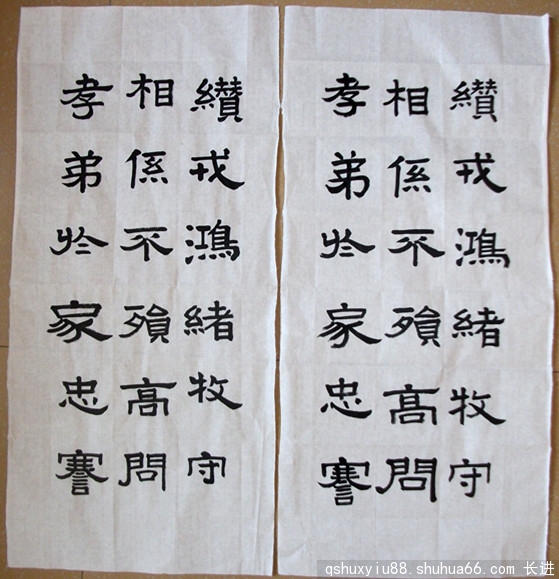 纉戎鴻緒牧守
相係不殞高問
孝弟於家忠謇
纉戎鴻緒牧守
相係不殞高問
孝弟於家忠謇
qshuxyiu88.shuhua66.com 长进